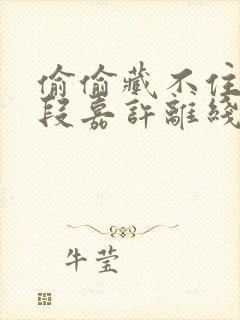 偷偷藏不住
段嘉許離綫
牛莹